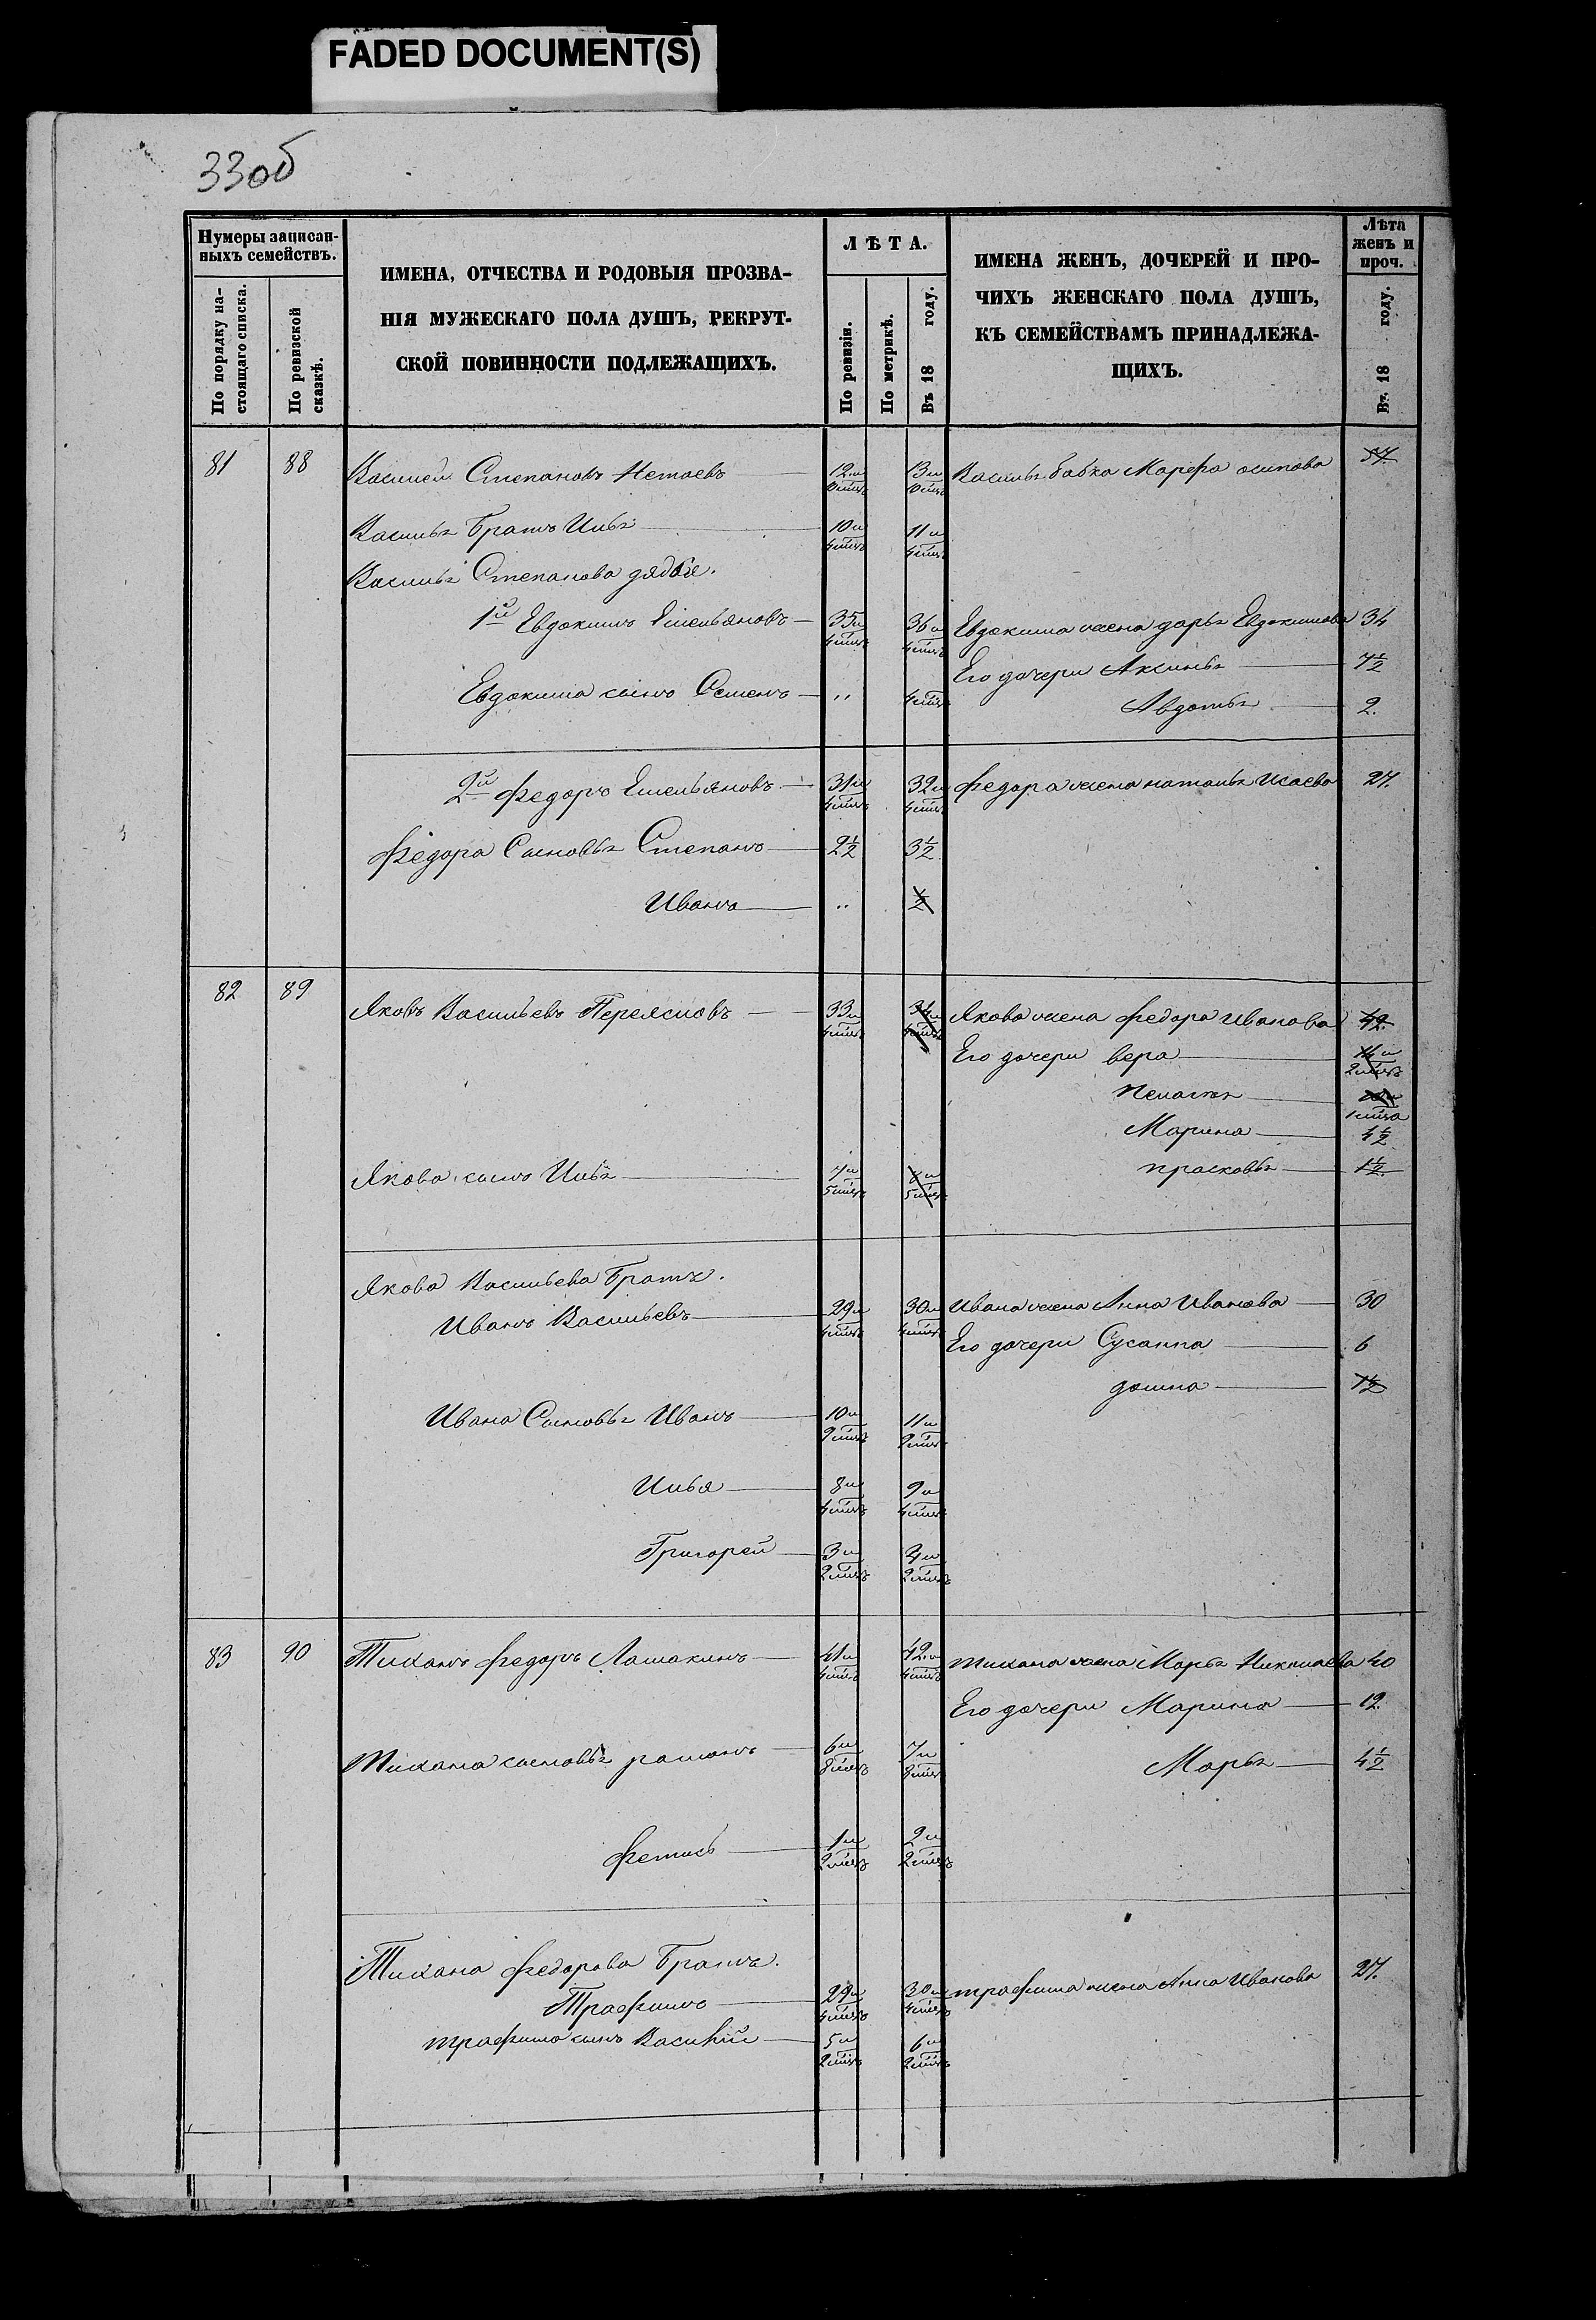 FADED DOCUMENT(S)
33об
Нумеры записан-
ныхъ семействъ.
По порядку на-
стоящаго списка.
По ревизской
сказкѣ.
ИМЕНА, ОТЧЕСТВА И РОДОВЫЯ ПРОЗВА-
НІЯ МУЖЕСКАГО ПОЛА ДУШЪ, РЕКРУТ-
СКОЙ ПОВИННОСТИ ПОДЛЕЖАЩИХЪ.
ЛѢТА.
По ревизіи.
По метрикѣ.
Въ 18 году.
ИМЕНА ЖЕНЪ, ДОЧЕРЕЙ И ПРО-
ЧИХЪ ЖЕНСКАГО ПОЛА ДУШЪ,
КЪ СЕМЕЙСТВАМЪ ПРИНАДЛЕЖА-
ЩИХЪ.
Лѣта
женъ и
проч.
Въ 18 году.
81 88 Василей Степановъ 12 13 бабка Марфа осипова 57
братъ Илья 10 11
Степанова дядья.
1й Евдокимъ Емельяновъ 35 36 Евдокима жена дарья Евдокимова 34
Его дочери Аксинья 7½
Евдокима сынъ Семенъ .. Авдотья 2.
2й Федоръ Емельяновъ 31 32 Федора жена наталья Исаева 27.
Федора Сыновья Степанъ 2½ 3½
Иванъ .. ½
82 89 Яковъ Васильевъ 33 34 Якова жена федора Иванова 42
Его дочери вера 14
пелагея
Марина 4½
Якова сынъ Илья 7 8 прасковья 1½
Якова Васильева Братъ.
Иванъ Васильевъ 29 30 Ивана жена Анна Иванова 30
Его дочери Сусанна 6
домна 1½
Ивана Сыновья Иванъ 10 11
Илья 8 9
Григорей 3 4
83 90 Тиханъ федоръ Лашакинъ 41 42 тихана жена Марья 40
Его дочери Марина 12
Тихана сыновья раманъ 6 7 Марья 4½
фетисъ 1 2
Тихана Федорова Братъ.
Трафимъ 29 30 трафима жена Анна Иванова 27.
трафима сынъ Василій 5 6